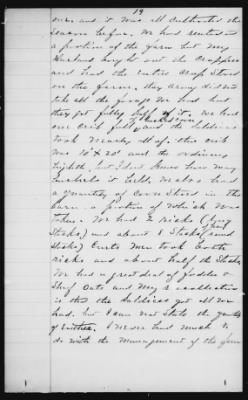 19
over and it was all cultivated the
season before. We had rented out
a portion of the farm but my
Husband bought out the Croppers
and had the entire crop stored
on the farm. They army did not
take all the forage we had but
they got fully half of it. We had
one Crib full of shucked corn and the Soldiers
took nearly all of this crib
was 10 x 20 and the ordinary
highth, but I dont know how many
bushels it held. We also had
a quantity of Corn stored in the
barn a portion of which was
taken. We had 2 ricks (long
Stacks) and about 8 Stacks (round
stacks) Curtis men took both
ricks and about half the Stacks
We had a great deal of fodder &
Shef Oats and my recollection
is that the Soldiers got all we
had. but I can not state the quantity
of either. I never had much to
do with the management of the farm